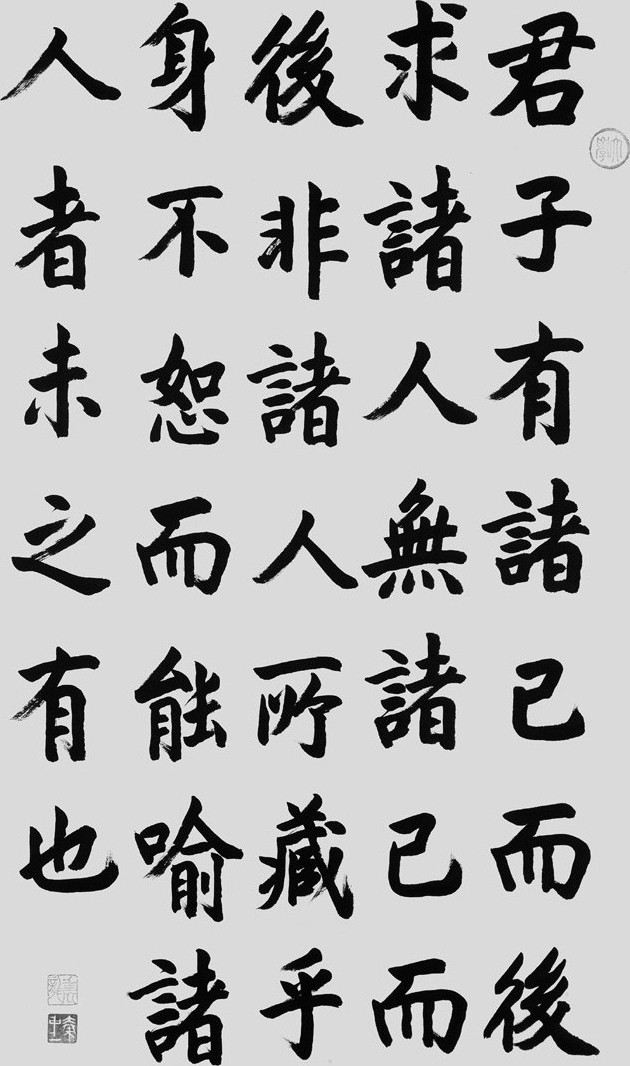 君子有諸己而後
求諸人無諸己而
後非諸人所藏乎
身不恕而能喻諸
人者未之有也